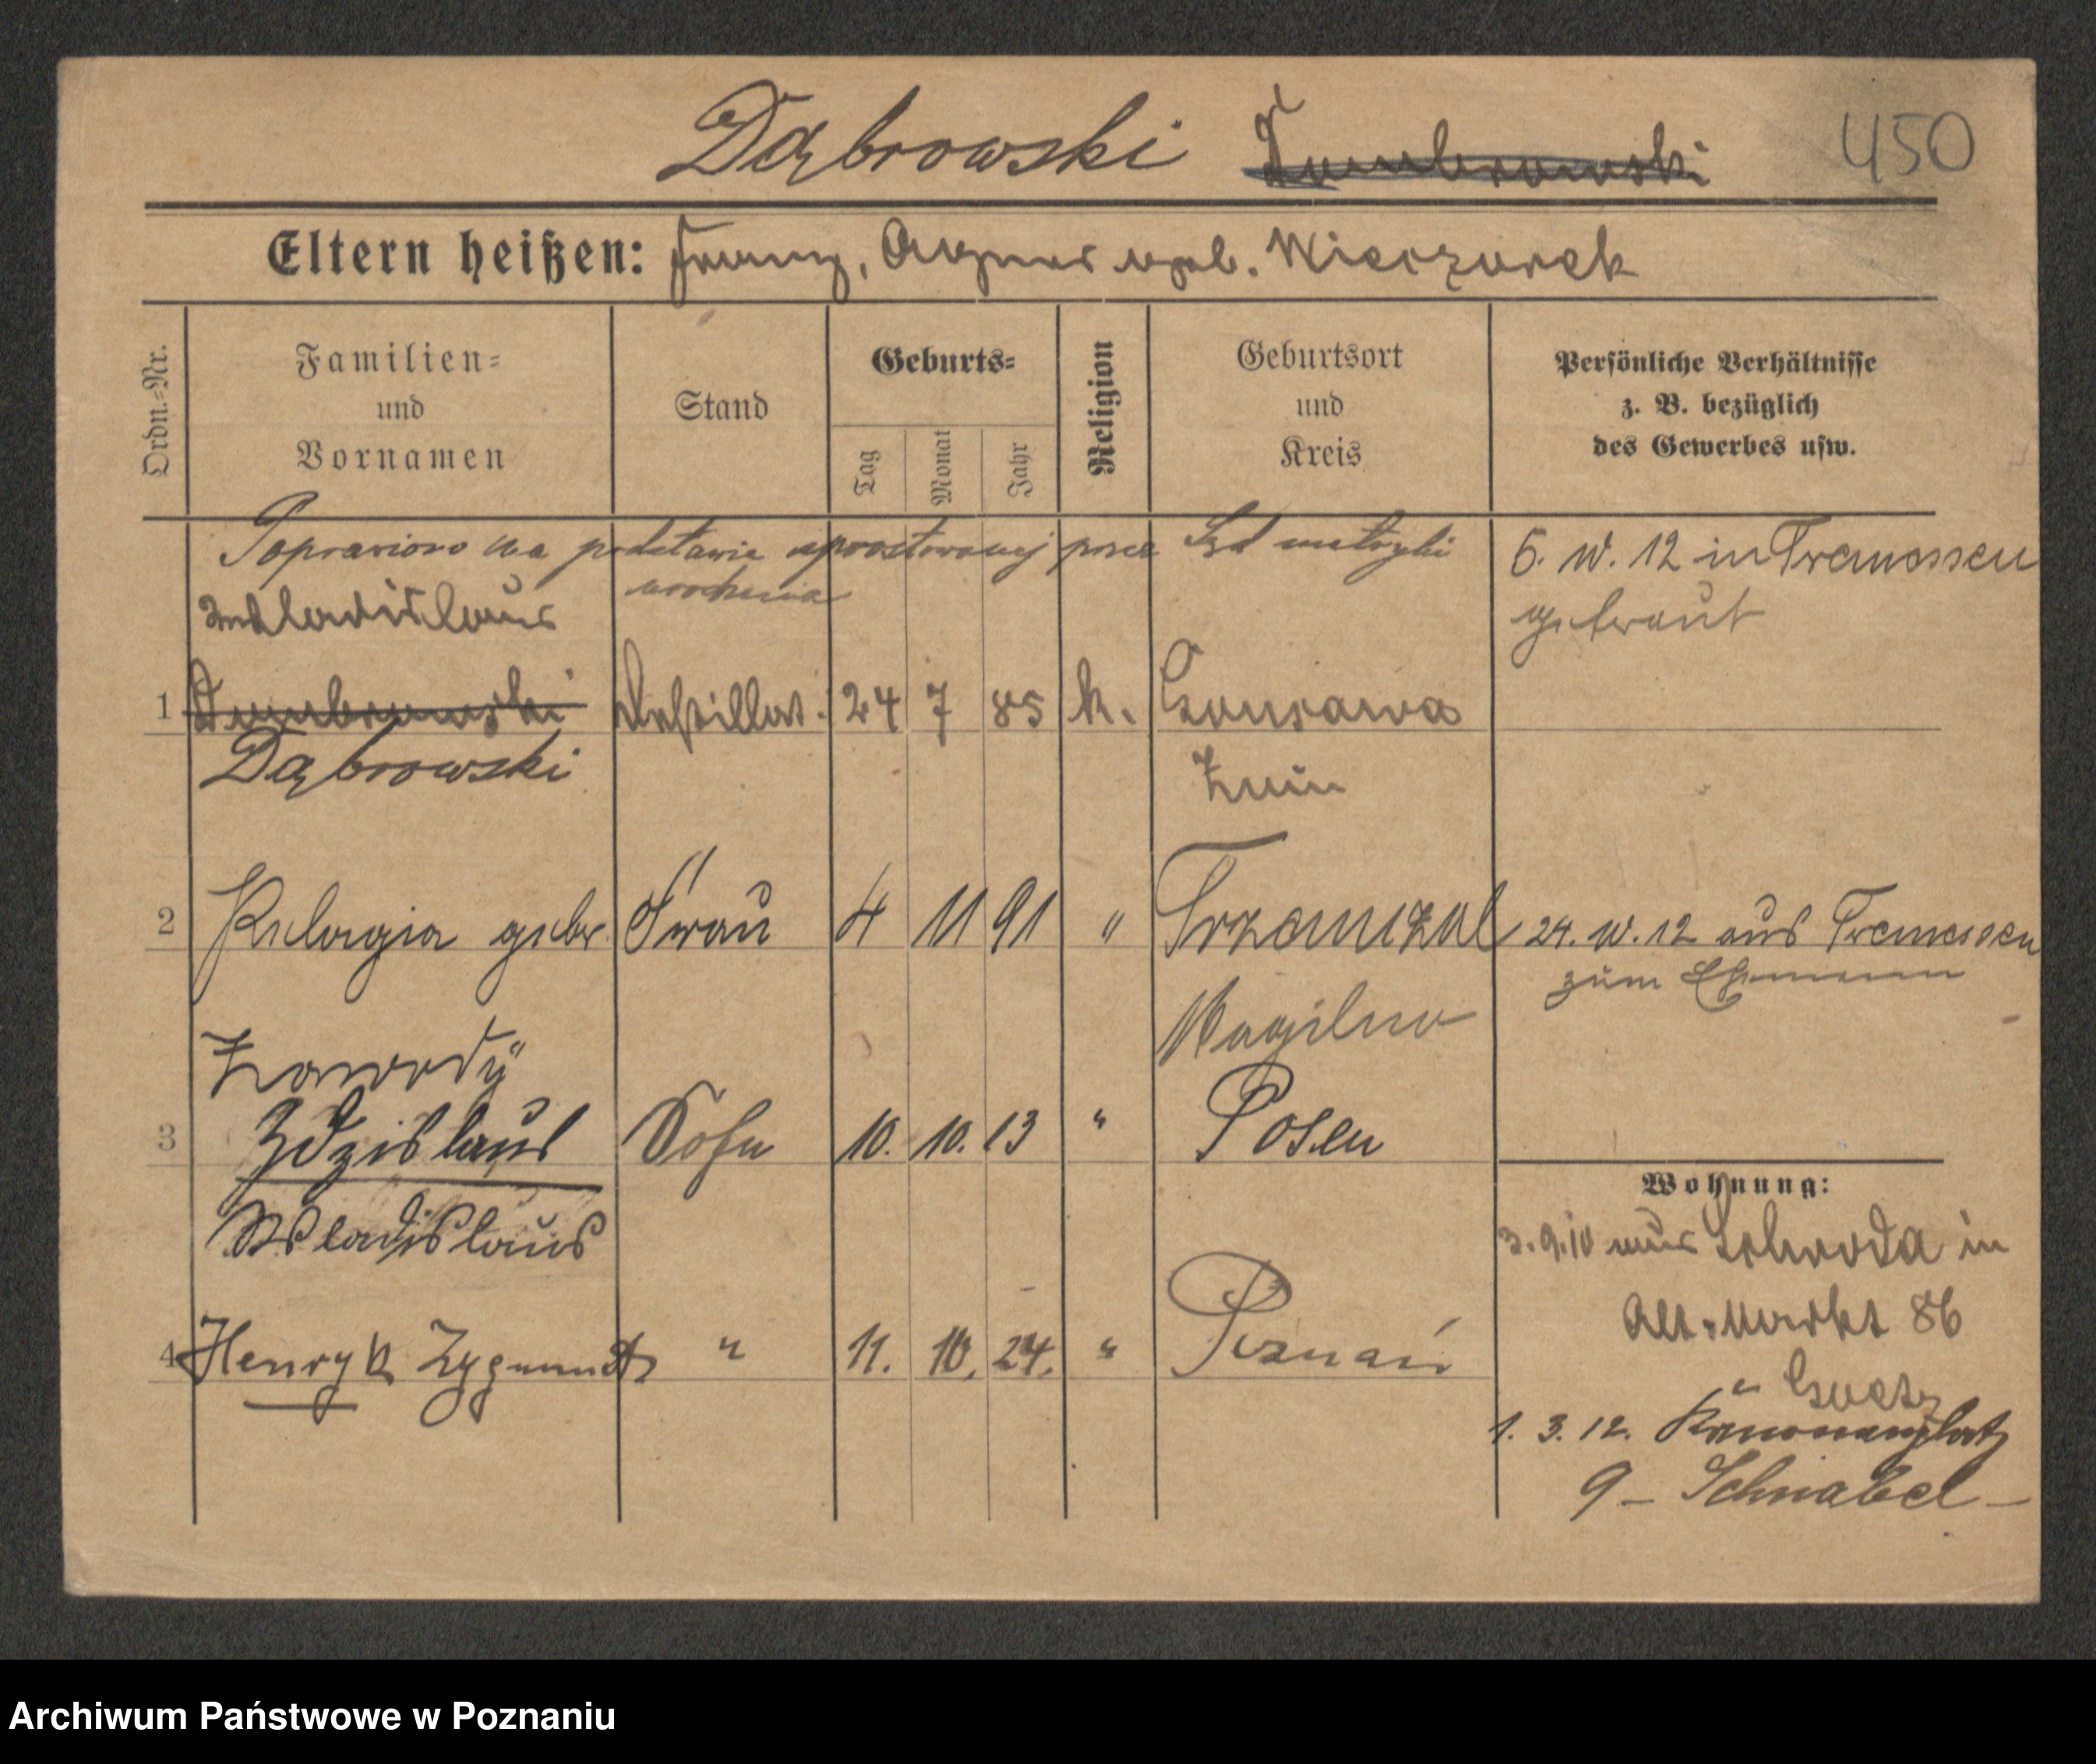 Dąbrowski Dumbrowski 450
Eltern heißen: Franz, Agnes geb. Wieczorek
Ordn.-Nr.
Familien-
und
Vornamen
Stand
Geburts-
Tag
Monat
Jahr
Religion
Geburtsort
und
Kreis
Persönliche Verhältnisse
z. B. bezüglich
des Gewerbes usw.
Poprawiono na podstawie sprostowanej przez Sąd metryki
urodzenia
6. XI. 12 in Tremessen
getraut
Wladislaus
1 Dumbrowski Destillat. 24 7 85 k. Gonsawa
Dąbrowski
Znin
2 Pelagia geb. Frau 4 11 91 " Trzemżal 24. XI. 12 aus Tremessen
zum Ehemann
Mogilno
Zawody
3 Zdzislaus Sohn 10. 10. 13 " Posen
Wladislaus
4 Henryk Zygmunt " 11. 10. 24. " Poznań
Wohnung:
3.9.10 aus Schroda in
Alt. Markt 86
b. Goetz
1. 3. 12. Kanonenplatz
9 – Schnabel –
Archiwum Państwowe w Poznaniu